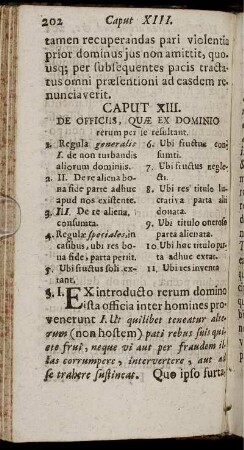 202 Caput XIII.
tamen recuperandas pari violentia
prior dominus jus non amittit, quo-
usq; per subsequentes pacis tracta-
tus omni præsentioni ad easdem re-
nunciaverit.
CAPUT XIII.
DE OFFICIIS, QUÆ EX DOMINIO
rerum per se resultant.
1. Regula generalis
I. de non turbandis
aliorum dominiis.
2. II. De re aliena bo-
na fide parte adhuc
apud nos existente.
3. III. De re aliena,
consumta.
4. Regulæ speciales, in
casibus, ubi res bo-
na fide, parta periit.
5. Ubi fructus soli ex-
tant.
6. Ubi fructus con-
sumti.
7. Ubi fructus negle-
cti.
8. Ubi res titulo lu-
crativa parta alii
donata.
9. Ubi titulo oneroso
parta alienata.
10. Ubi hoc titulo par-
ta adhuc extat.
11. Ubi res inventa
§. I. EX introducto rerum domino
ista officia inter homines pro-
venerunt I. Ut quilibet teneatur alte-
rum (non hostem) pati rebus suis qui-
ete frui, neque vi aut per fraudem il-
las corrumpere, intervertere, aut ad
se trahere sustineat. Quo ipso furta,